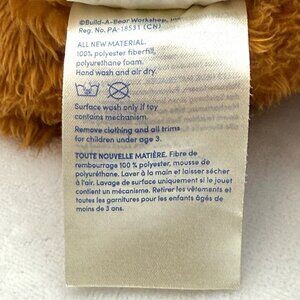 ©Build-A-Bear Workshop, Inc.
Reg. No. PA-18531 (CN)
ALL NEW MATERIAL.
100% polyester fiberfill,
polyurethane foam.
Hand wash and air dry.
Surface wash only if toy
contains mechanism.
Remove clothing and all trims
for children under age 3.
TOUTE NOUVELLE MATIÈRE. Fibre de
rembourrage 100 % polyester, mousse de
polyuréthane. Laver à la main et laisser sécher
à l'air. Lavage de surface uniquement si le jouet
contient un mécanisme. Retirer les vêtements et
toutes les garnitures pour les enfants âgés de
moins de 3 ans.